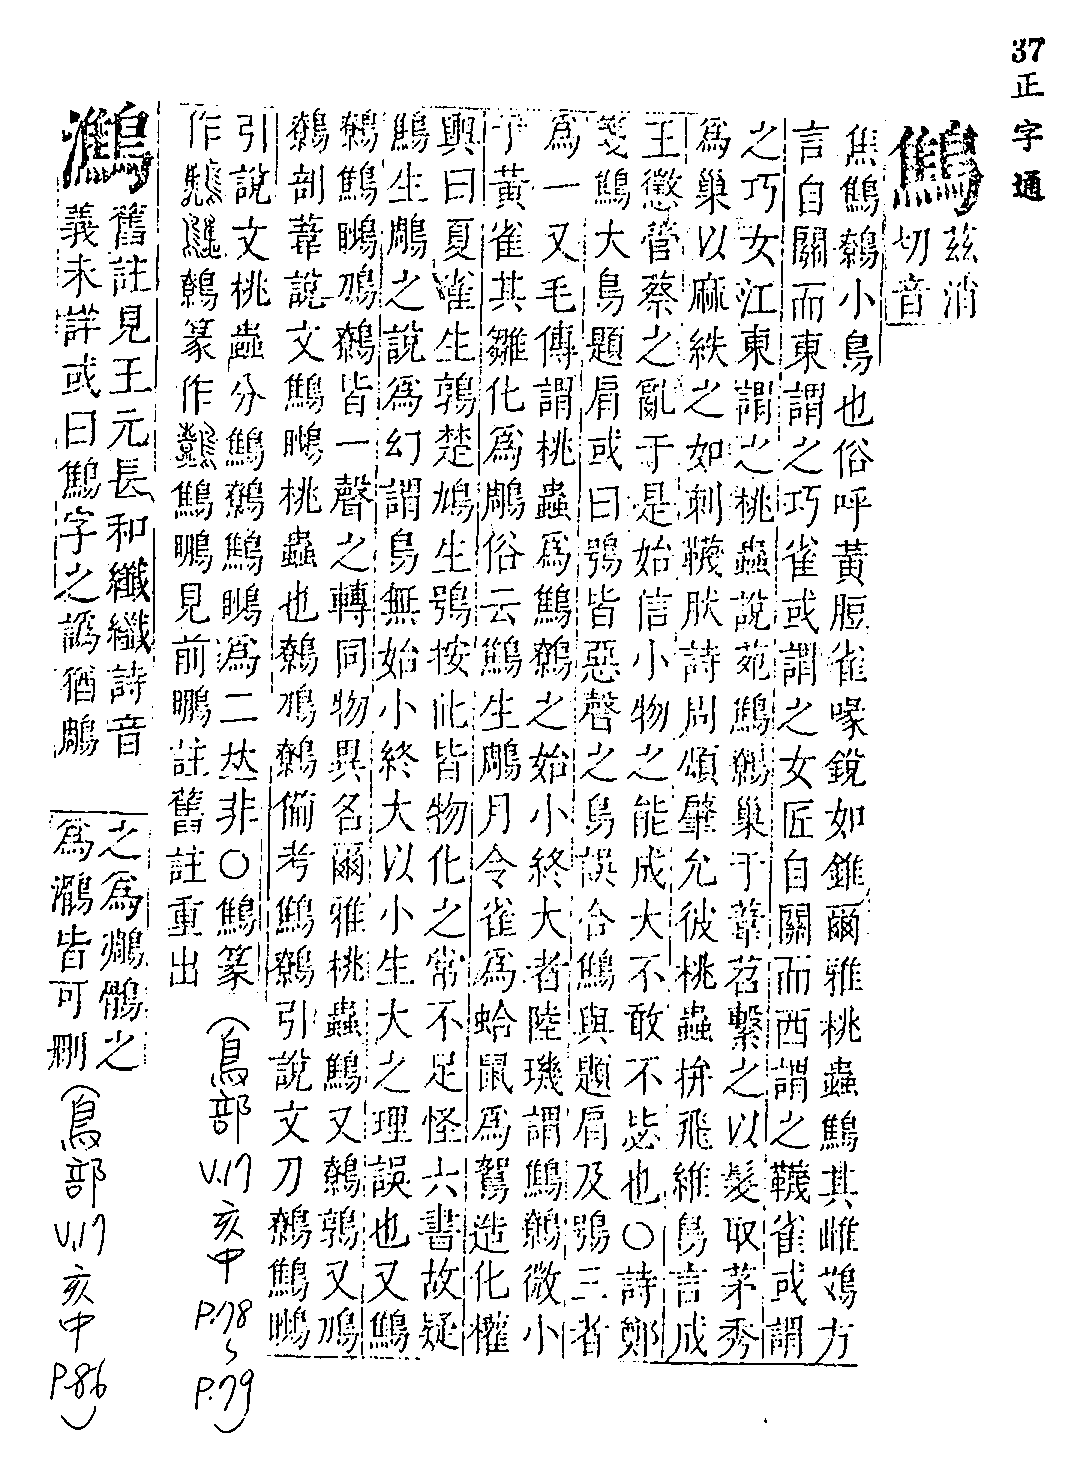 37正字通
鷦
茲消
切音
焦鷦鷯小鳥也俗呼黃脰雀喙銳如錐爾雅桃蟲鷦其雌鴱方
言自關而東謂之巧雀或謂之女匠自關而西謂之韈雀或謂
之巧女江東謂之桃蟲說苑鷦鷯巢于葦苕繫之以髮取茅秀
為巢以麻紩之如刺韈肰詩周頌肇允彼桃蟲拚飛維鳥言成
王懲管蔡之亂于是始信小物之能成大不敢不毖也○詩鄭
箋鷦大鳥題肩或曰鴞皆惡聲之鳥誤合鷦與題肩及鴞三者
為一又毛傳謂桃蟲為鷦鷯之始小終大者陸璣謂鷦鷯微小
于黃雀其雛化為鵰俗云鷦生鵰月令雀為蛤鼠為鴽造化權
輿曰夏雀生鶉楚鳩生鴞按此皆物化之常不足怪六書故疑
鷦生鵰之說為幻謂鳥無始小終大以小生大之理誤也又鷦
鷯鷦鵬鳭鷯皆一聲之轉同物異名爾雅桃蟲鷦又鷯鶉又鳭
鷯剖葦說文鷦桃蟲也鷯鳭鷯備考鷦鷯引說文刀鷯鷦
引說文桃蟲分鷦鷯鷦為二𠀤非○鷦篆
作鷯篆作鷦見前註舊註重出
（鳥部V.17亥中P.78~P.79）
舊註見王元長和纖纖詩音
義未詳或曰鷦字之譌猶鵰
之為鶻之
為皆可刪（鳥部V.17亥中P.86）